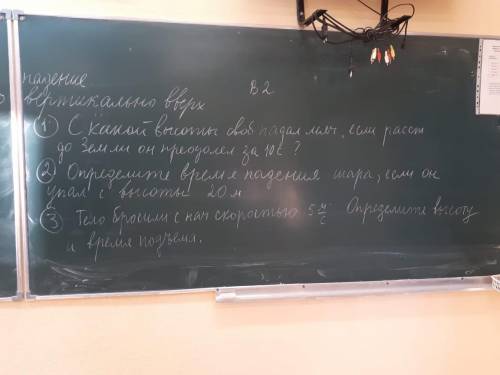 падение
вертикально вверх
В2
① С какой высоты своб падал мяч, если расст
до Земли он преодолел за 10 с ?
② Определите время падения шара, если он
упал с высоты 20 м
③ Тело бросили с нач скоростью 5 м/с Определите высоту
и время подъема.